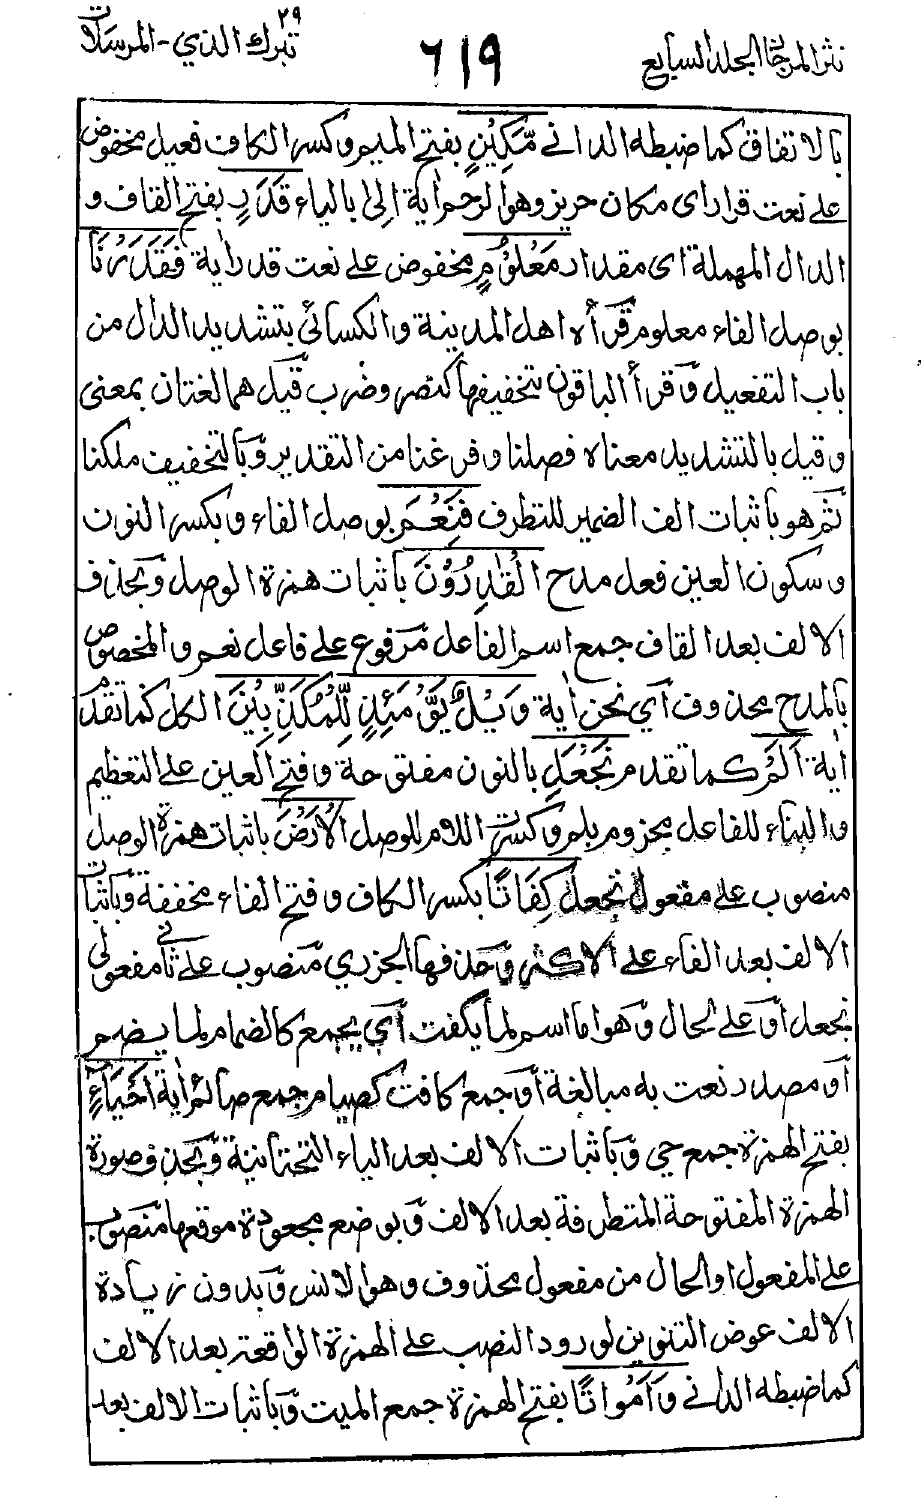 نثر المرجان المجلد السابع
٦١٩
تبرك الذي ٢٩ - المرسلات
بالاتفاق كما ضبطه الداني مَّكِيْنٍ بفتح الميم وكسر الكاف فعيل مخفوض
على نعت قرار اى مكان حريز وهو الرحم اٰية اِلىٰ بالياء قَدَرٍ بفتح القاف و
الدال المهملة اى مقدار مَّعْلُوْمٍ مخفوض على نعت قدر اٰية فَقَدَرْنَا
بوصل الفاء معلوم قرأه اهل المدينة والكسائي بتشديد الدال من
باب التفعيل وقرأ الباقون بتخفيفها كنصر وضرب قيل هما لغتان بمعنى
وقيل بالتشديد معناه فصلنا وفرغنا من التقدير وبالتخفيف ملكنا
ثم هو باثبات الف الضمير للتطرف فَنِعْمَ بوصل الفاء وبكسر النون
وسكون العين فعل مدح الْقٰدِرُوْنَ باثبات همزة الوصل وبحذف
الالف بعد القاف جمع اسم الفاعل مرفوع على فاعل نعم والمخصوص
بالمدح محذوف اي نحن اٰية وَيْلٌ يَّوْمَئِذٍ لِّلْمُكَذِّبِيْنَ الكل كما تقدم
اٰية اَلَمْ كما تقدم نَجْعَلِ بالنون مفتوحة وفتح العين على التعظيم
والبناء للفاعل مجزوم بلم وكسرت اللام للوصل الْاَرْضَ باثبات همزة الوصل
منصوب على مفعول نجعل كِفَاتًا بكسر الكاف وفتح الفاء مخففة وباثبات
الالف بعد الفاء على الاكثر وحذفها الجزري منصوب على ثاني مفعولي
نجعل او على الحال وهو اما اسم لما يكفت اي يجمع كالضمام لما يضم
او مصدر نعت به مبالغة او جمع كافت كصيام جمع صائم اٰية اَحْيَآءً
بفتح الهمزة جمع حي وباثبات الالف بعد الياء التحتانية وبحذف صورة
الهمزة المفتوحة المتطرفة بعد الالف وبوضع مجعودة موقعها منصوب
على المفعول او الحال من مفعول محذوف وهو الانس وبدون زيادة
الالف عوض التنوين لورود النصب على الهمزة الواقعة بعد الالف
كما ضبطه الداني وَاَمْوَاتًا بفتح الهمزة جمع الميت وباثبات الالف بعد